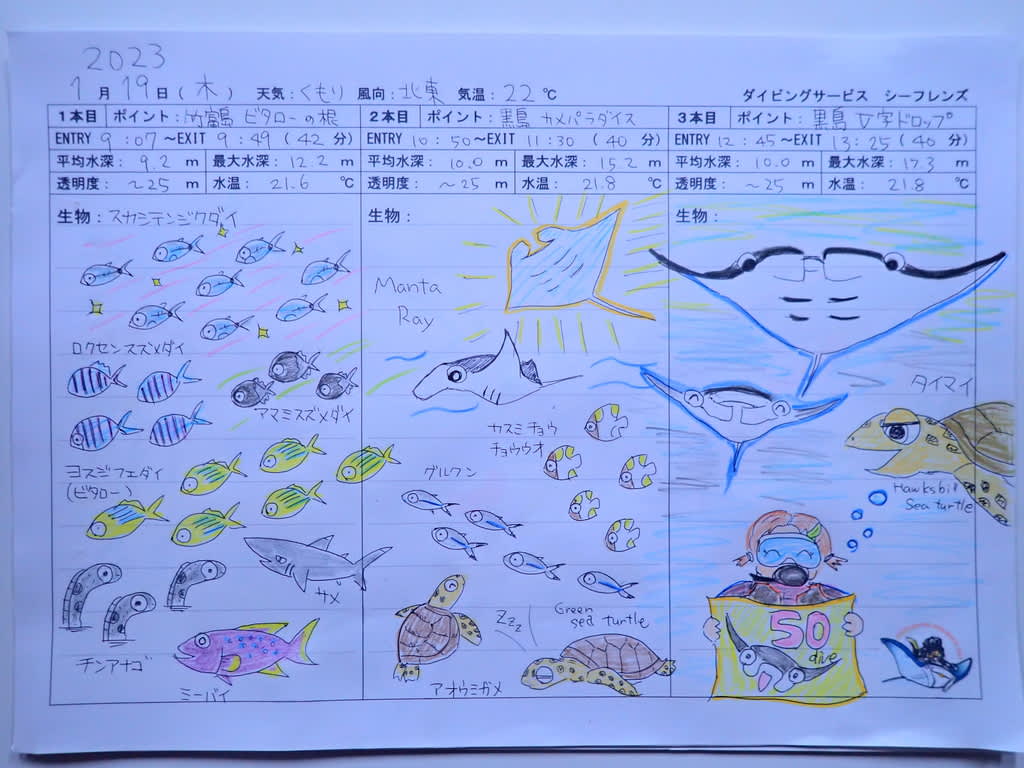 2023
1月19日(木) 天気:くもり 風向:北東 気温:22℃ ダイビングサービス シーフレンズ
1本目 ポイント:竹富島 ビタローの根
ENTRY 9:07~EXIT 9:49(42分)
平均水深:9.2m 最大水深:12.2m
透明度:~25m 水温:21.6℃
生物:スカシテンジクダイ
ロクセンスズメダイ
アマミスズメダイ
ヨスジフエダイ
(ビタロー)
サメ
チンアナゴ
ミーバイ
2本目 ポイント:黒島 カメパラダイス
ENTRY 10:50~EXIT 11:30(40分)
平均水深:10.0m 最大水深:15.2m
透明度:~25m 水温:21.8℃
生物:
Manta
Ray
カスミチョウ
チョウウオ
グルクン
Zzz
Green
sea turtle
アオウミガメ
3本目 ポイント:黒島 V字ドロップ
ENTRY 12:45~EXIT 13:25(40分)
平均水深:10.0m 最大水深:17.3m
透明度:~25m 水温:21.8℃
生物:
タイマイ
Hawksbil
Sea turtle
50
dive